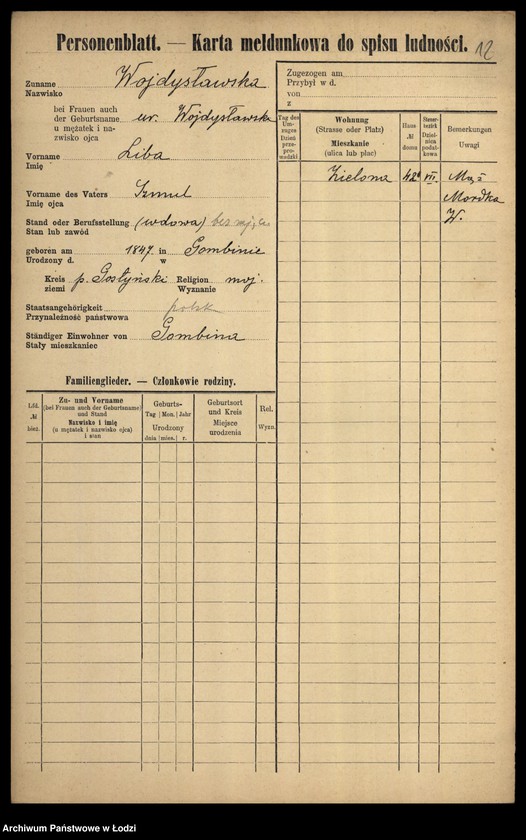 Personenblatt. — Karta meldunkowa do spisu ludności.
12
Zuname
Nazwisko
Wojdysławska
bei Frauen auch
der Geburtsname
u mężatek i na-
zwisko ojca
ur. Wojdysławska
Vorname
Imię
Liba
Vorname des Vaters
Imię ojca
Szmul
Stand oder Berufsstellung
Stan lub zawód
(wdowa) bez
geboren am 1847 in Gombinie
Urodzony d. w
Kreis p. Gostyński Religion moj.
ziemi Wyznanie
Staatsangehörigkeit
Przynależność państwowa
polsk
Ständiger Einwohner von
Stały mieszkaniec
Gombina
Zugezogen am
Przybył w d.
von
z
Tag des
Um-
zuges
Dzień
prze-
prowadzki
Wohnung
(Strasse oder Platz)
Mieszkanie
(ulica lub plac)
Haus
№
domu
Steuer-
bezirk
Dziel-
nica
podat-
kowa
Bemerkungen
Uwagi
Zielona 42 VII. Mąż
Mordka
W.
Familienglieder. — Członkowie rodziny.
Lfd.
№
bież.
Zu- und Vorname
(bei Frauen auch der Geburtsname)
und Stand
Nazwisko i imię
(u mężatek i nazwisko ojca)
i stan
Geburts-
Tag Mon. Jahr
Urodzony
dnia mies. r.
Geburtsort
und Kreis
Miejsce
urodzenia
Rel.
Wyzn.
Archiwum Państwowe w Łodzi